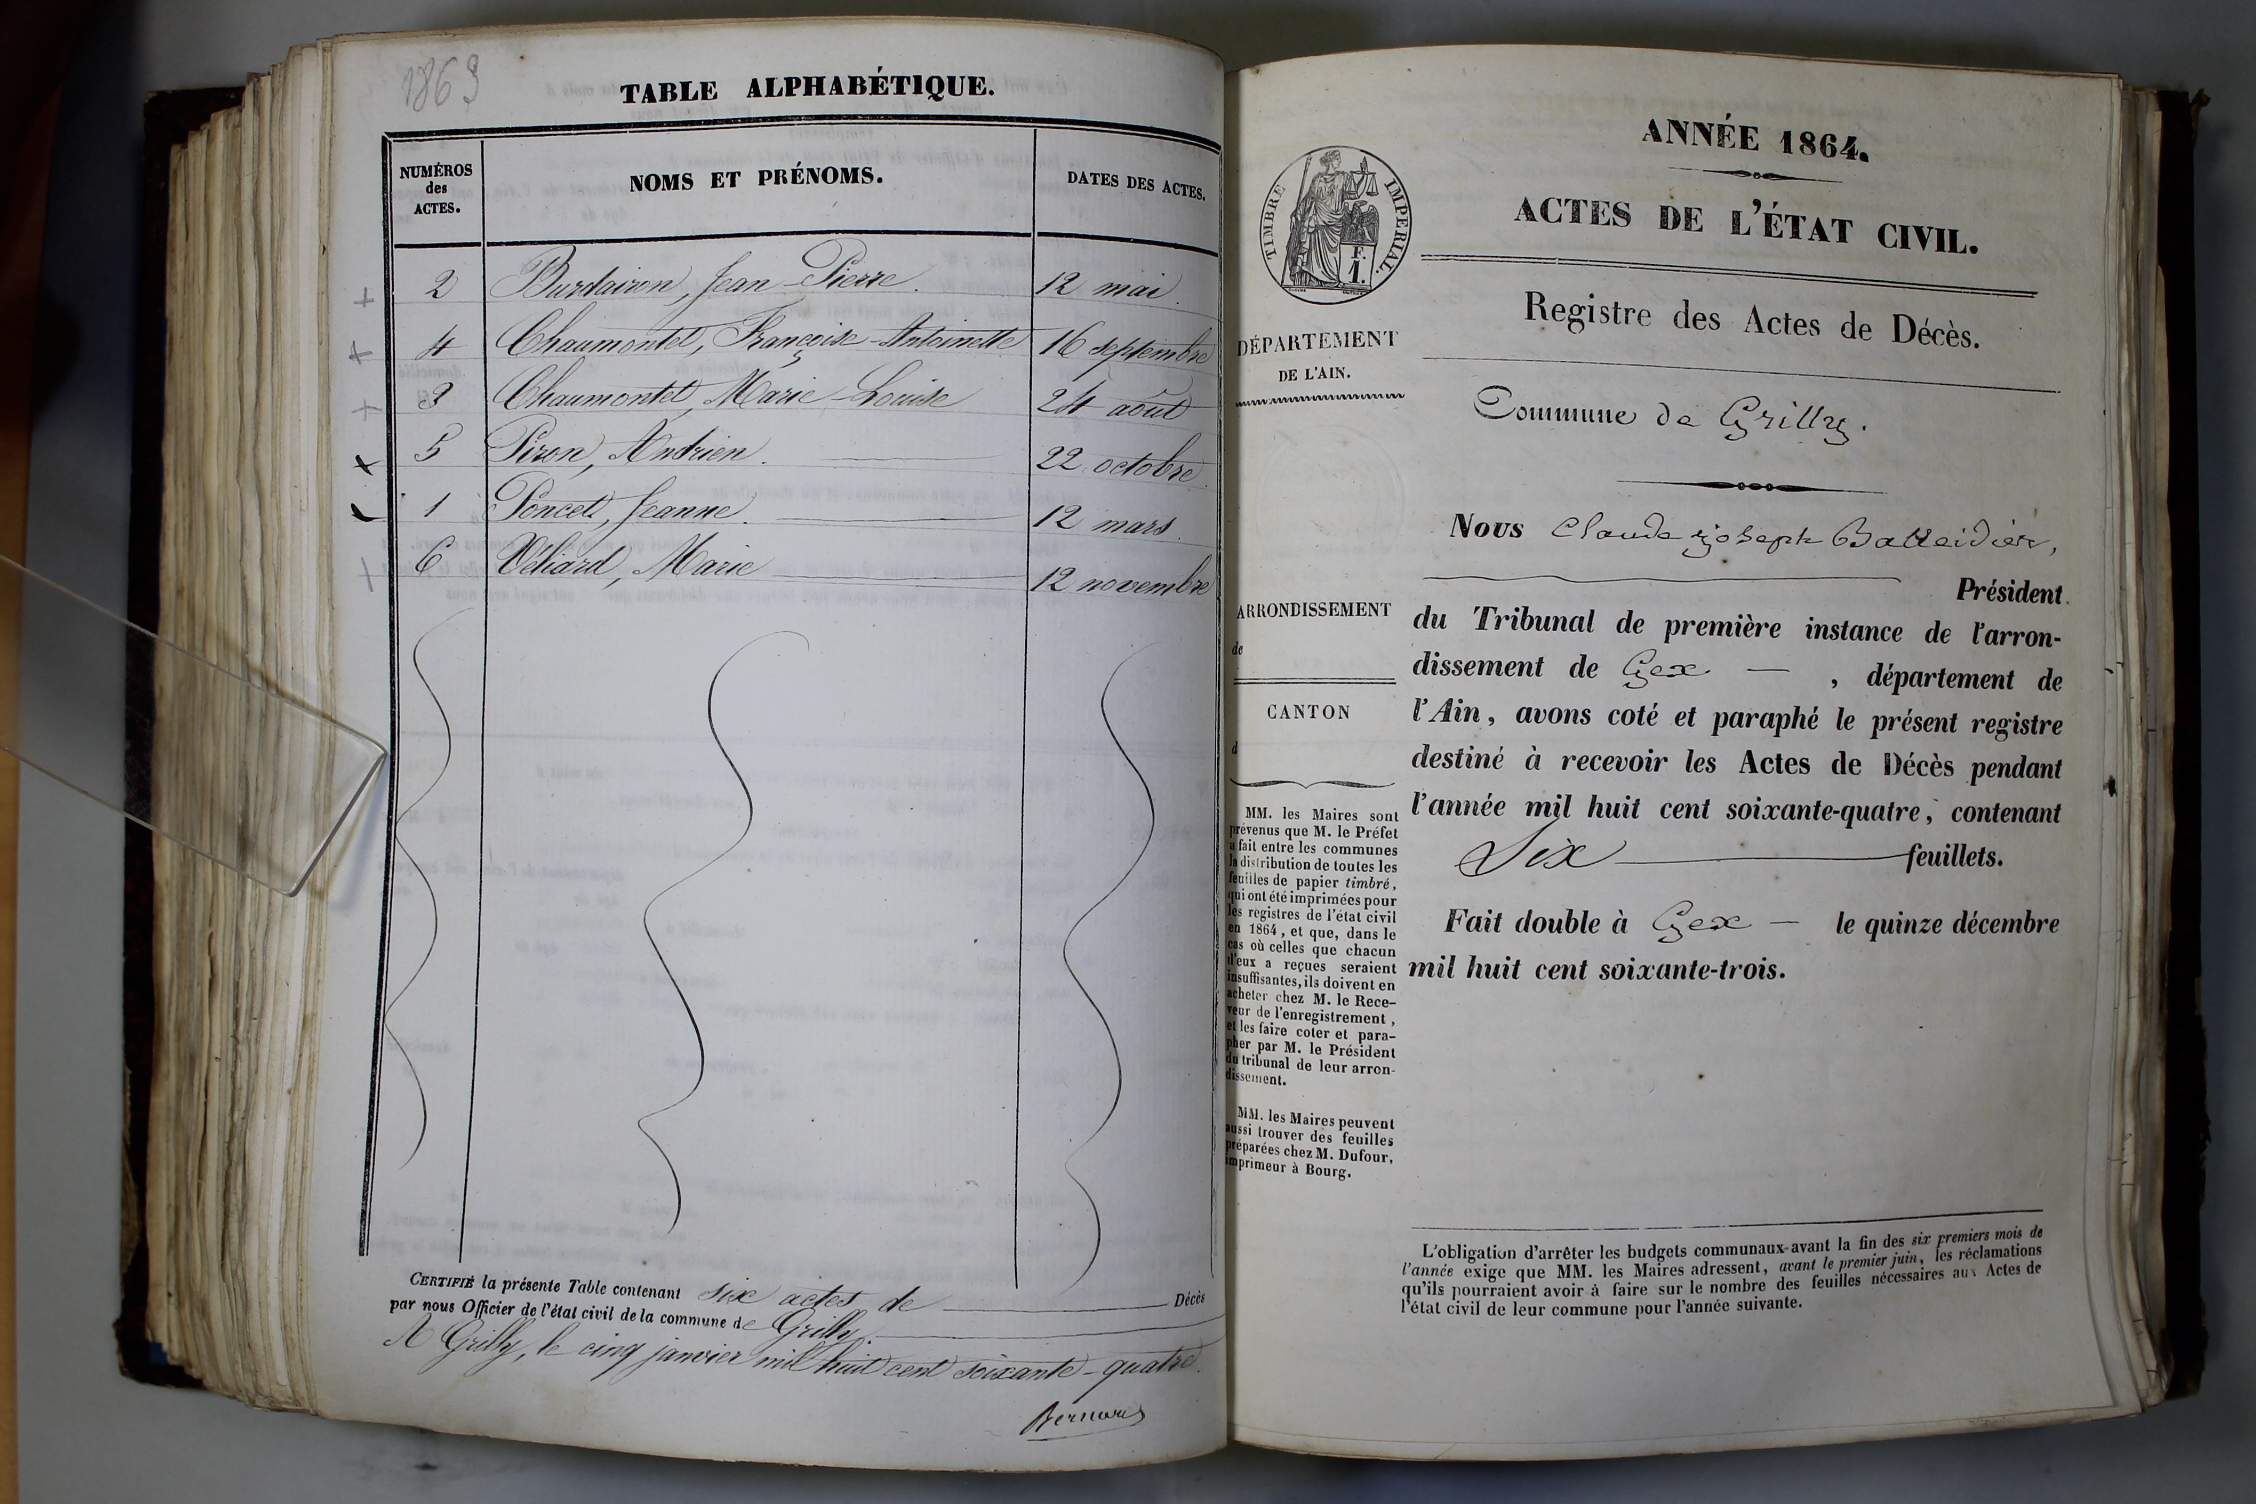 1863
TABLE ALPHABÉTIQUE.
NUMÉROS
des
ACTES.
NOMS ET PRÉNOMS.
DATES DES ACTES.
2 Burdairon, Jean-Pierre. 12 mai.
4 Chaumontet, Françoise-Antoinette 16 septembre
3 Chaumontet, Marie-Louise 24 août
5 Piron, Andrien. 22 octobre.
1 Poncet, Jeanne. 12 mars.
6 Véliard, Marie 12 novembre
CERTIFIÉ la présente Table contenant six actes de Décès
par nous Officier de l'état civil de la commune de Grilly.
A Grilly, le cinq janvier mil huit cent soixante-quatre.
ANNÉE 1864.
ACTES DE L'ÉTAT CIVIL.
TIMBRE IMPERIAL.
F.
1.
Registre des Actes de Décès.
DÉPARTEMENT
DE L'AIN.
Commune de Grilly.
Nous Claude Joseph
Président
du Tribunal de première instance de l'arron-
dissement de Gex — , département de
l'Ain, avons coté et paraphé le présent registre
destiné à recevoir les Actes de Décès pendant
l'année mil huit cent soixante-quatre, contenant
Six feuillets.
Fait double à Gex — le quinze décembre
mil huit cent soixante-trois.
ARRONDISSEMENT
de
CANTON
d
MM. les Maires sont
prévenus que M. le Préfet
a fait entre les communes
la distribution de toutes les
feuilles de papier timbré,
qui ont été imprimées pour
les registres de l'état civil
en 1864, et que, dans le
cas où celles que chacun
d'eux a reçues seraient
insuffisantes, ils doivent en
acheter chez M. le Rece-
veur de l'enregistrement,
et les faire coter et para-
pher par M. le Président
du tribunal de leur arron-
dissement.
MM. les Maires peuvent
aussi trouver des feuilles
préparées chez M. Dufour,
imprimeur à Bourg.
L'obligation d'arrêter les budgets communaux avant la fin des six premiers mois de
l'année exige que MM. les Maires adressent, avant le premier juin, les réclamations
qu'ils pourraient avoir à faire sur le nombre des feuilles nécessaires aux Actes de
l'état civil de leur commune pour l'année suivante.